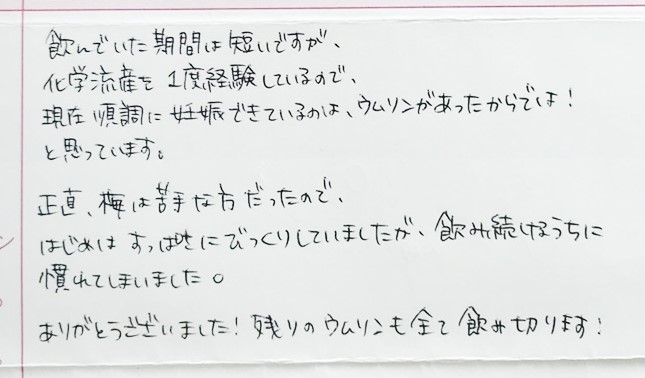 飲んでいた期間は短いですが、
化学流産を1度経験しているので、
現在順調に妊娠できているのは、ウムリンがあったからでは！
と思っています。
正直、梅は苦手な方だったので、
はじめはすっぱさにびっくりしていましたが、飲み続けるうちに
慣れてしまいました。
ありがとうございました！残りのウムリンも全て飲み切ります！